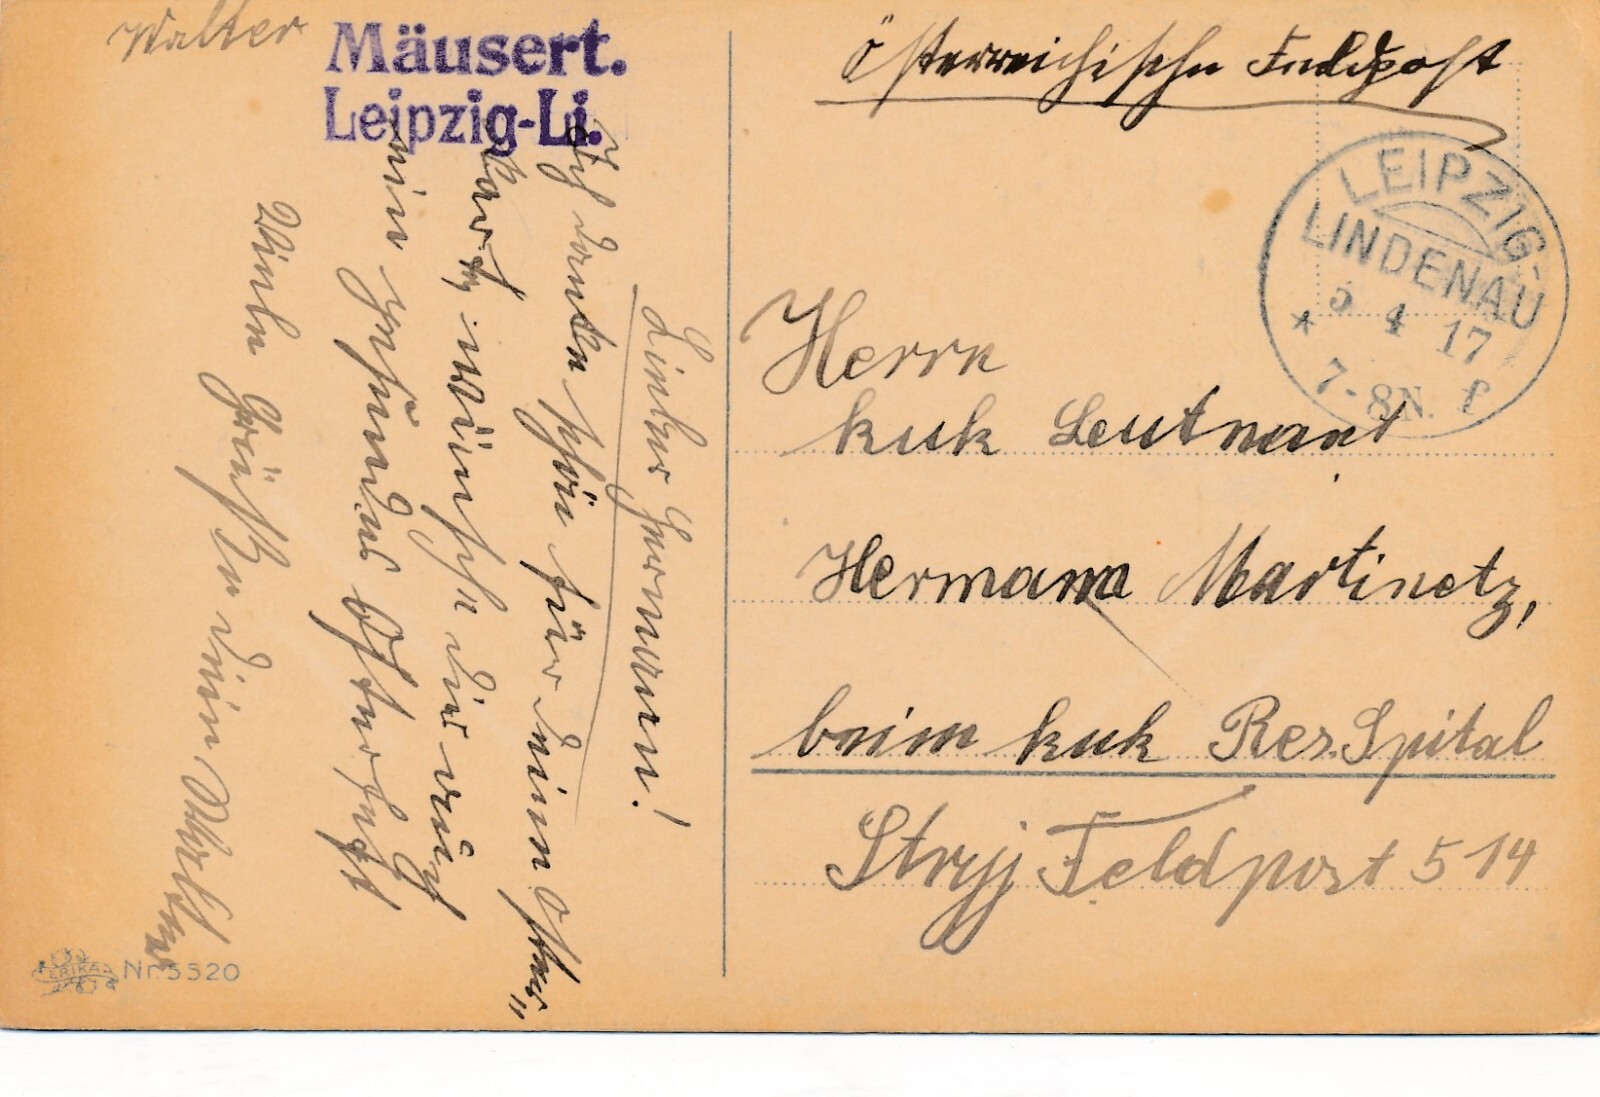 Walter Mäusert.
Leipzig-Li.
Österreichische Feldpost
LEIPZIG-
LINDENAU
* 5 4 17
7-8N. f
Herrn
kuk Leutnant
Hermann Martinetz,
beim kuk Res. Spital
Stryj Feldpost 514
Lieber Hermann!
Ich danke schön für deinen Oster-
karte, wünsche dir auch
ein gesundes Osterfest
Viele Grüße dein Walter
ERIKA Nr. 5520